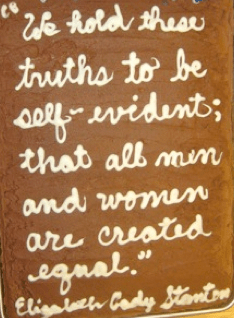 "We hold these
truths to be
self-evident;
that all men
and women
are created
equal."
Elizabeth Cady Stanton